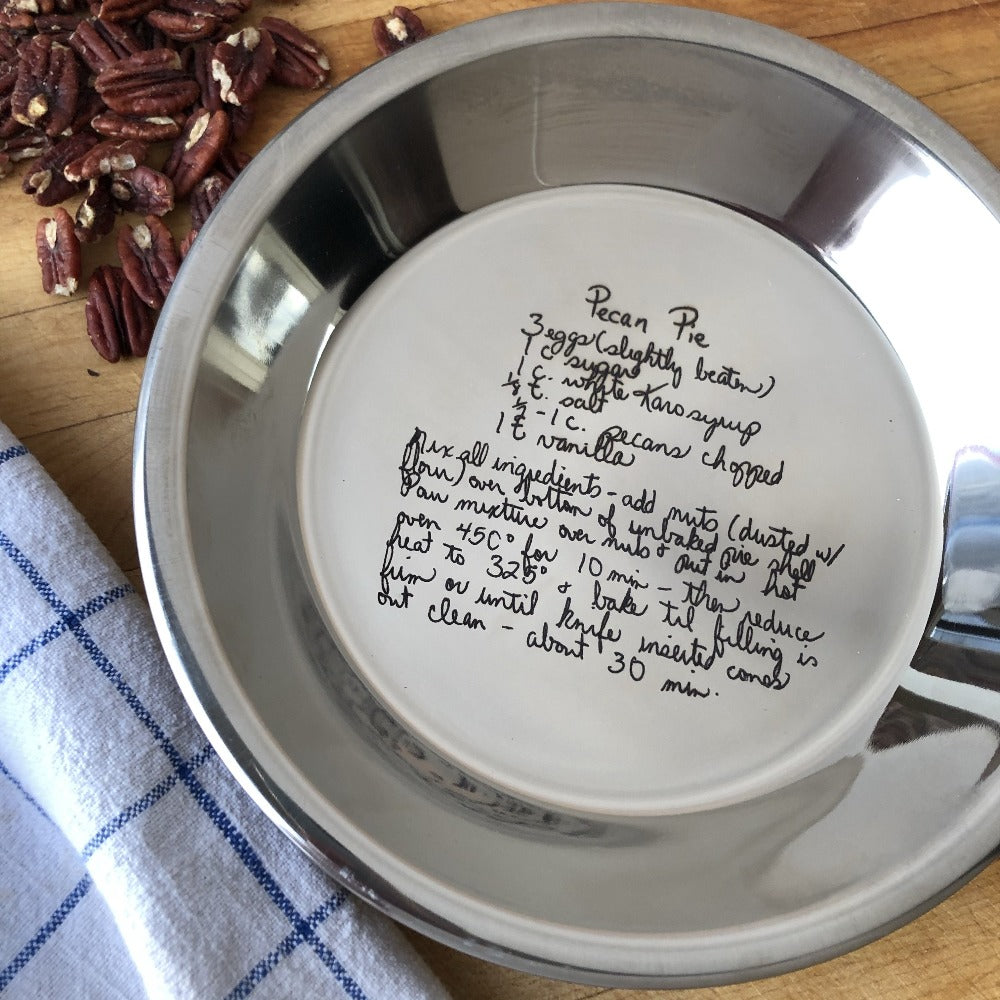 Pecan Pie
3 eggs (slightly beaten)
1 c sugar
1 c. white Karo syrup
1/8 t. salt
1/2 - 1 c. pecans chopped
1 t vanilla
Mix all ingredients - add nuts (dusted w/
flour) over bottom of unbaked pie shell
Pour mixture over nuts & put in hot
oven 450° for 10 min - then reduce
heat to 325° & bake til filling is
firm or until knife inserted comes
out clean - about 30 min.